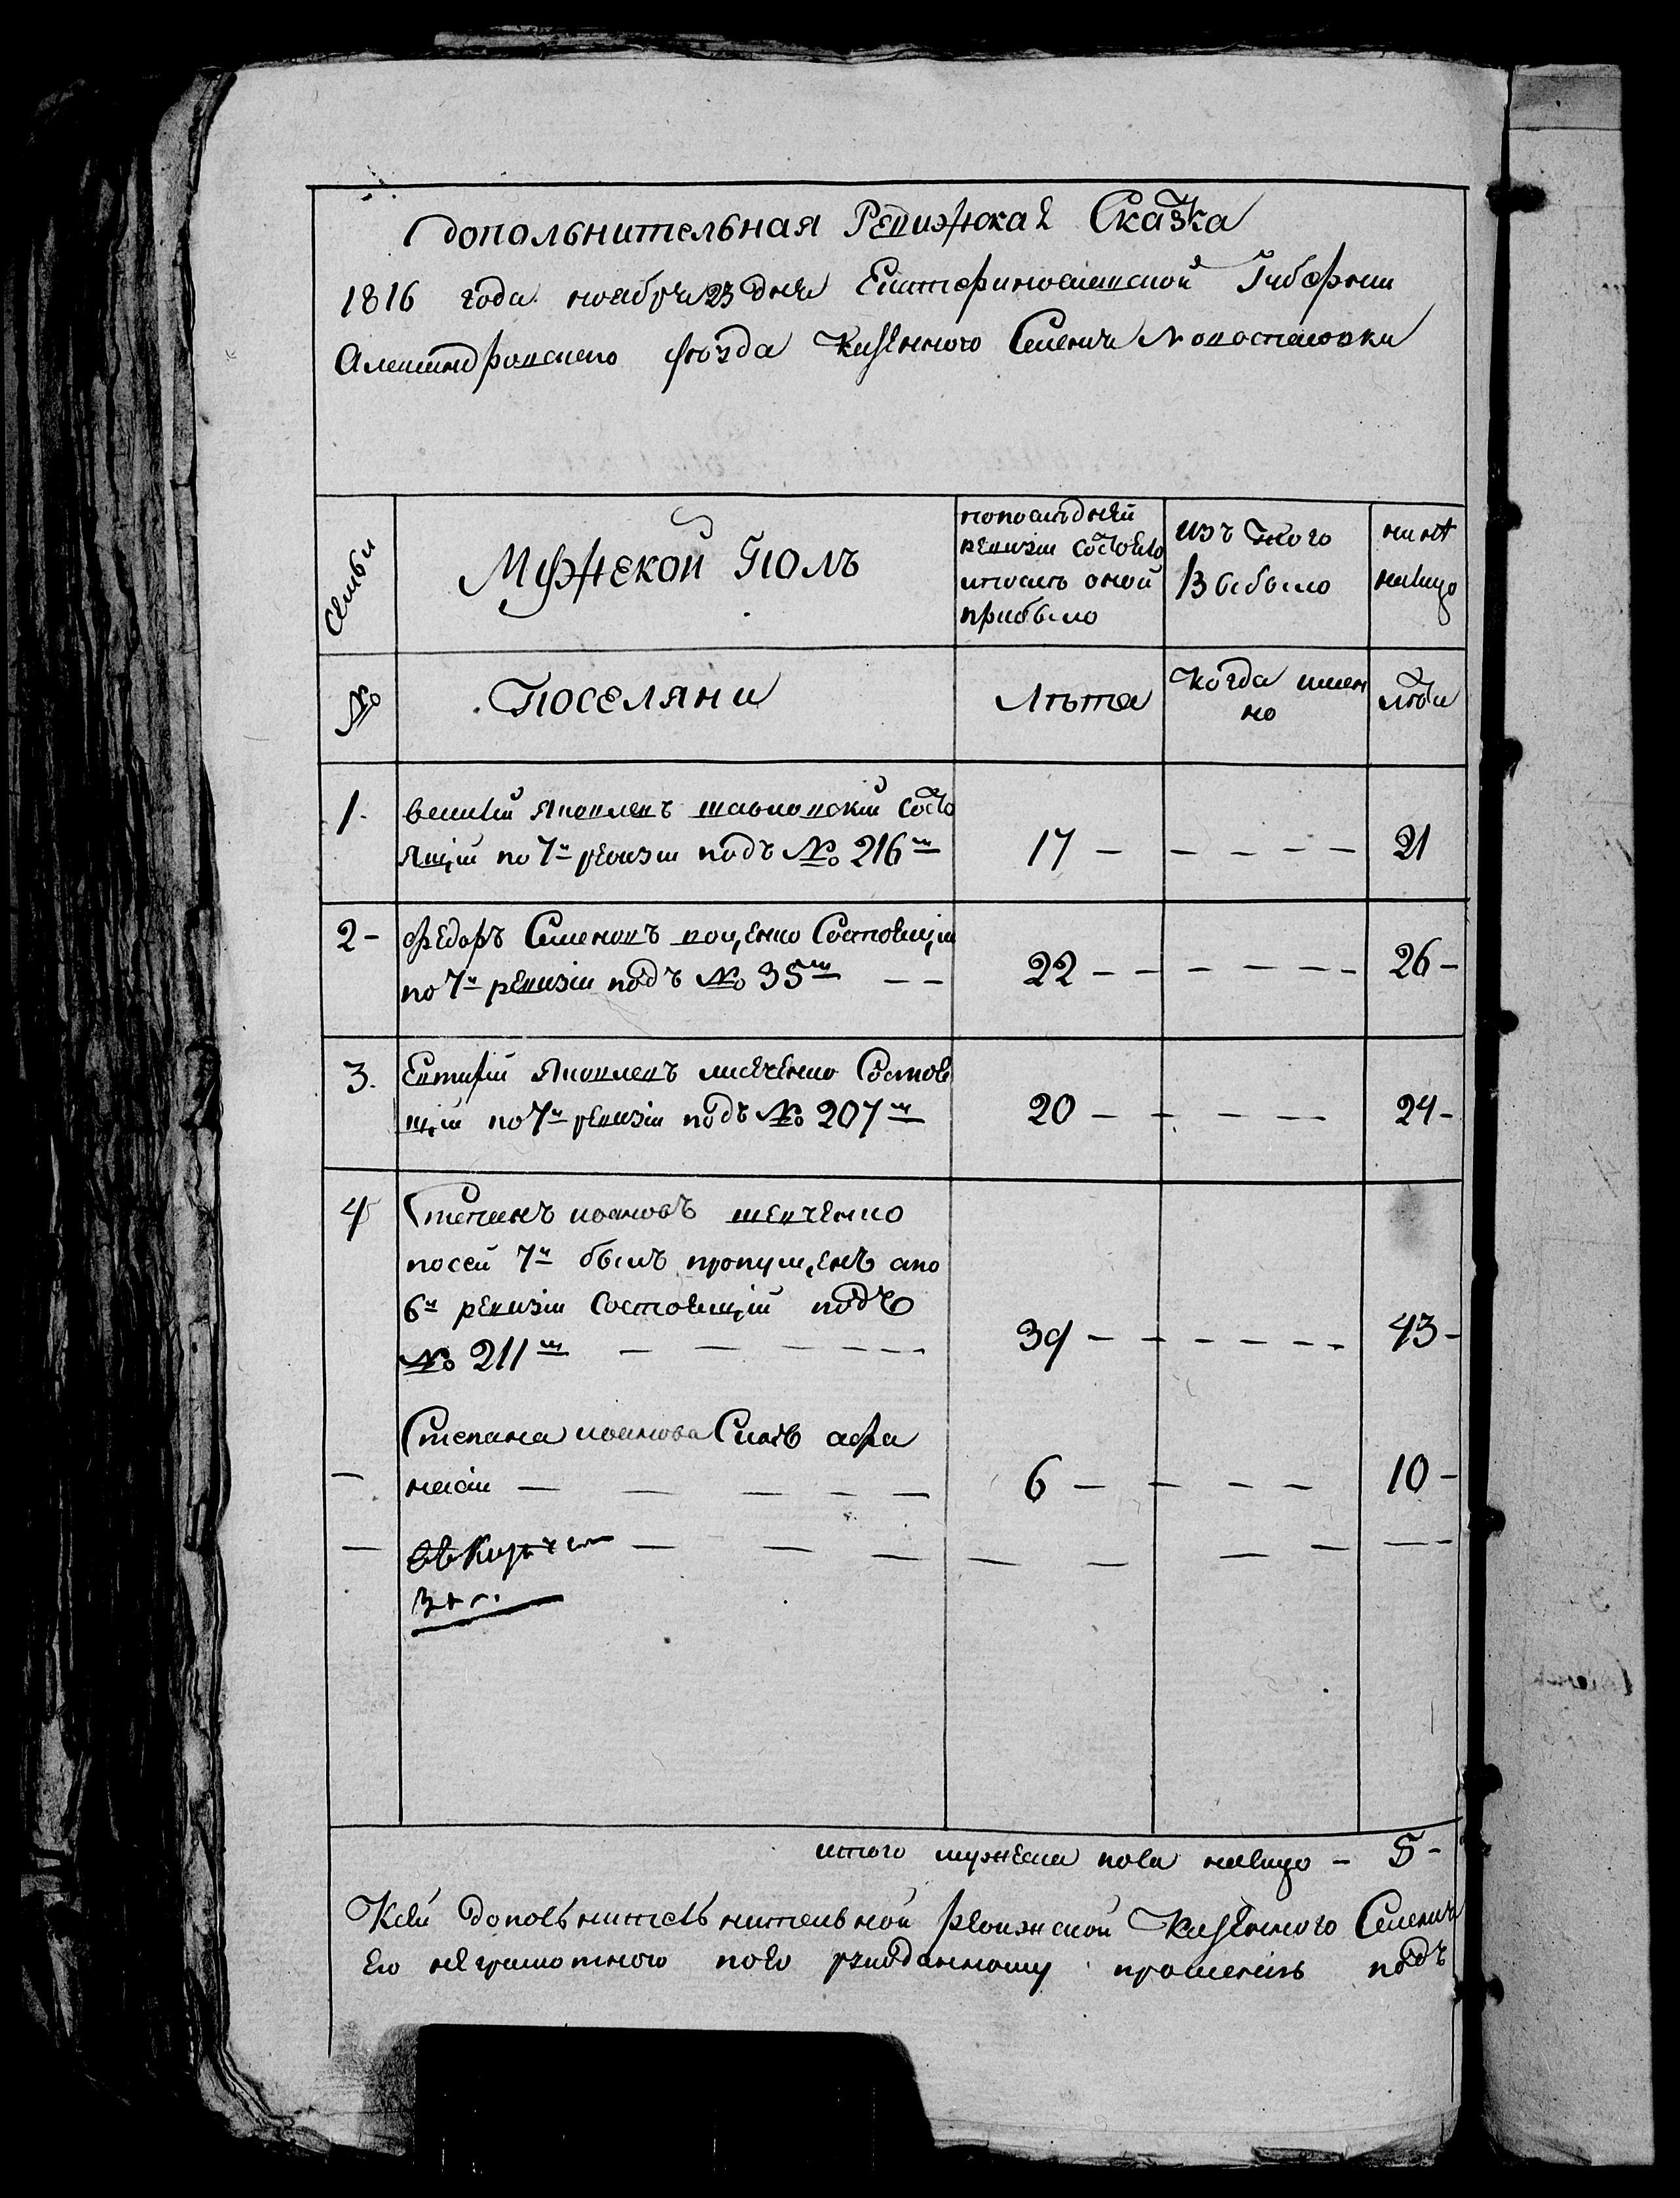 дополънительная Ревижская Сказка
1816 года ноября 23 дня Екатеринославской Губернии
Александровского уезда Казенного Селения Новоспасовки
Семьи
Мужской Полъ
попоследней
ревизии состояло
ипосле оной
прибыло
изъ того
Выбыло
ныне
налицо
№
Поселяни
Лета
Когда имен
но
лета
1. Яковлевъ состо
ящий по 7й ревизии подъ № 216м 17 — — — — — 21
2 - Федоръ Семеновъ коценко Состоящий
по 7й ревизии подъ № 35м — — 22 — — — — — — 26 —
3. Евтифий Яковлевъ лисеченко Состоя
щий по 7й ревизии подъ № 207м 20 — — — — 24 —
4 Степанъ ивановъ шевченко
посей 7й былъ пропущенъ апо
6й ревизии Состоящий подъ
№ 211м — — — — — 39 — — — — — — 43 —
Степана иванова Сынъ афа
— насий — — — — — 6 — — — — 10 —
итого мужеска пола налицо — 5 —
Ксей Казенного Селения
Его неграмотного поего прошению подъ